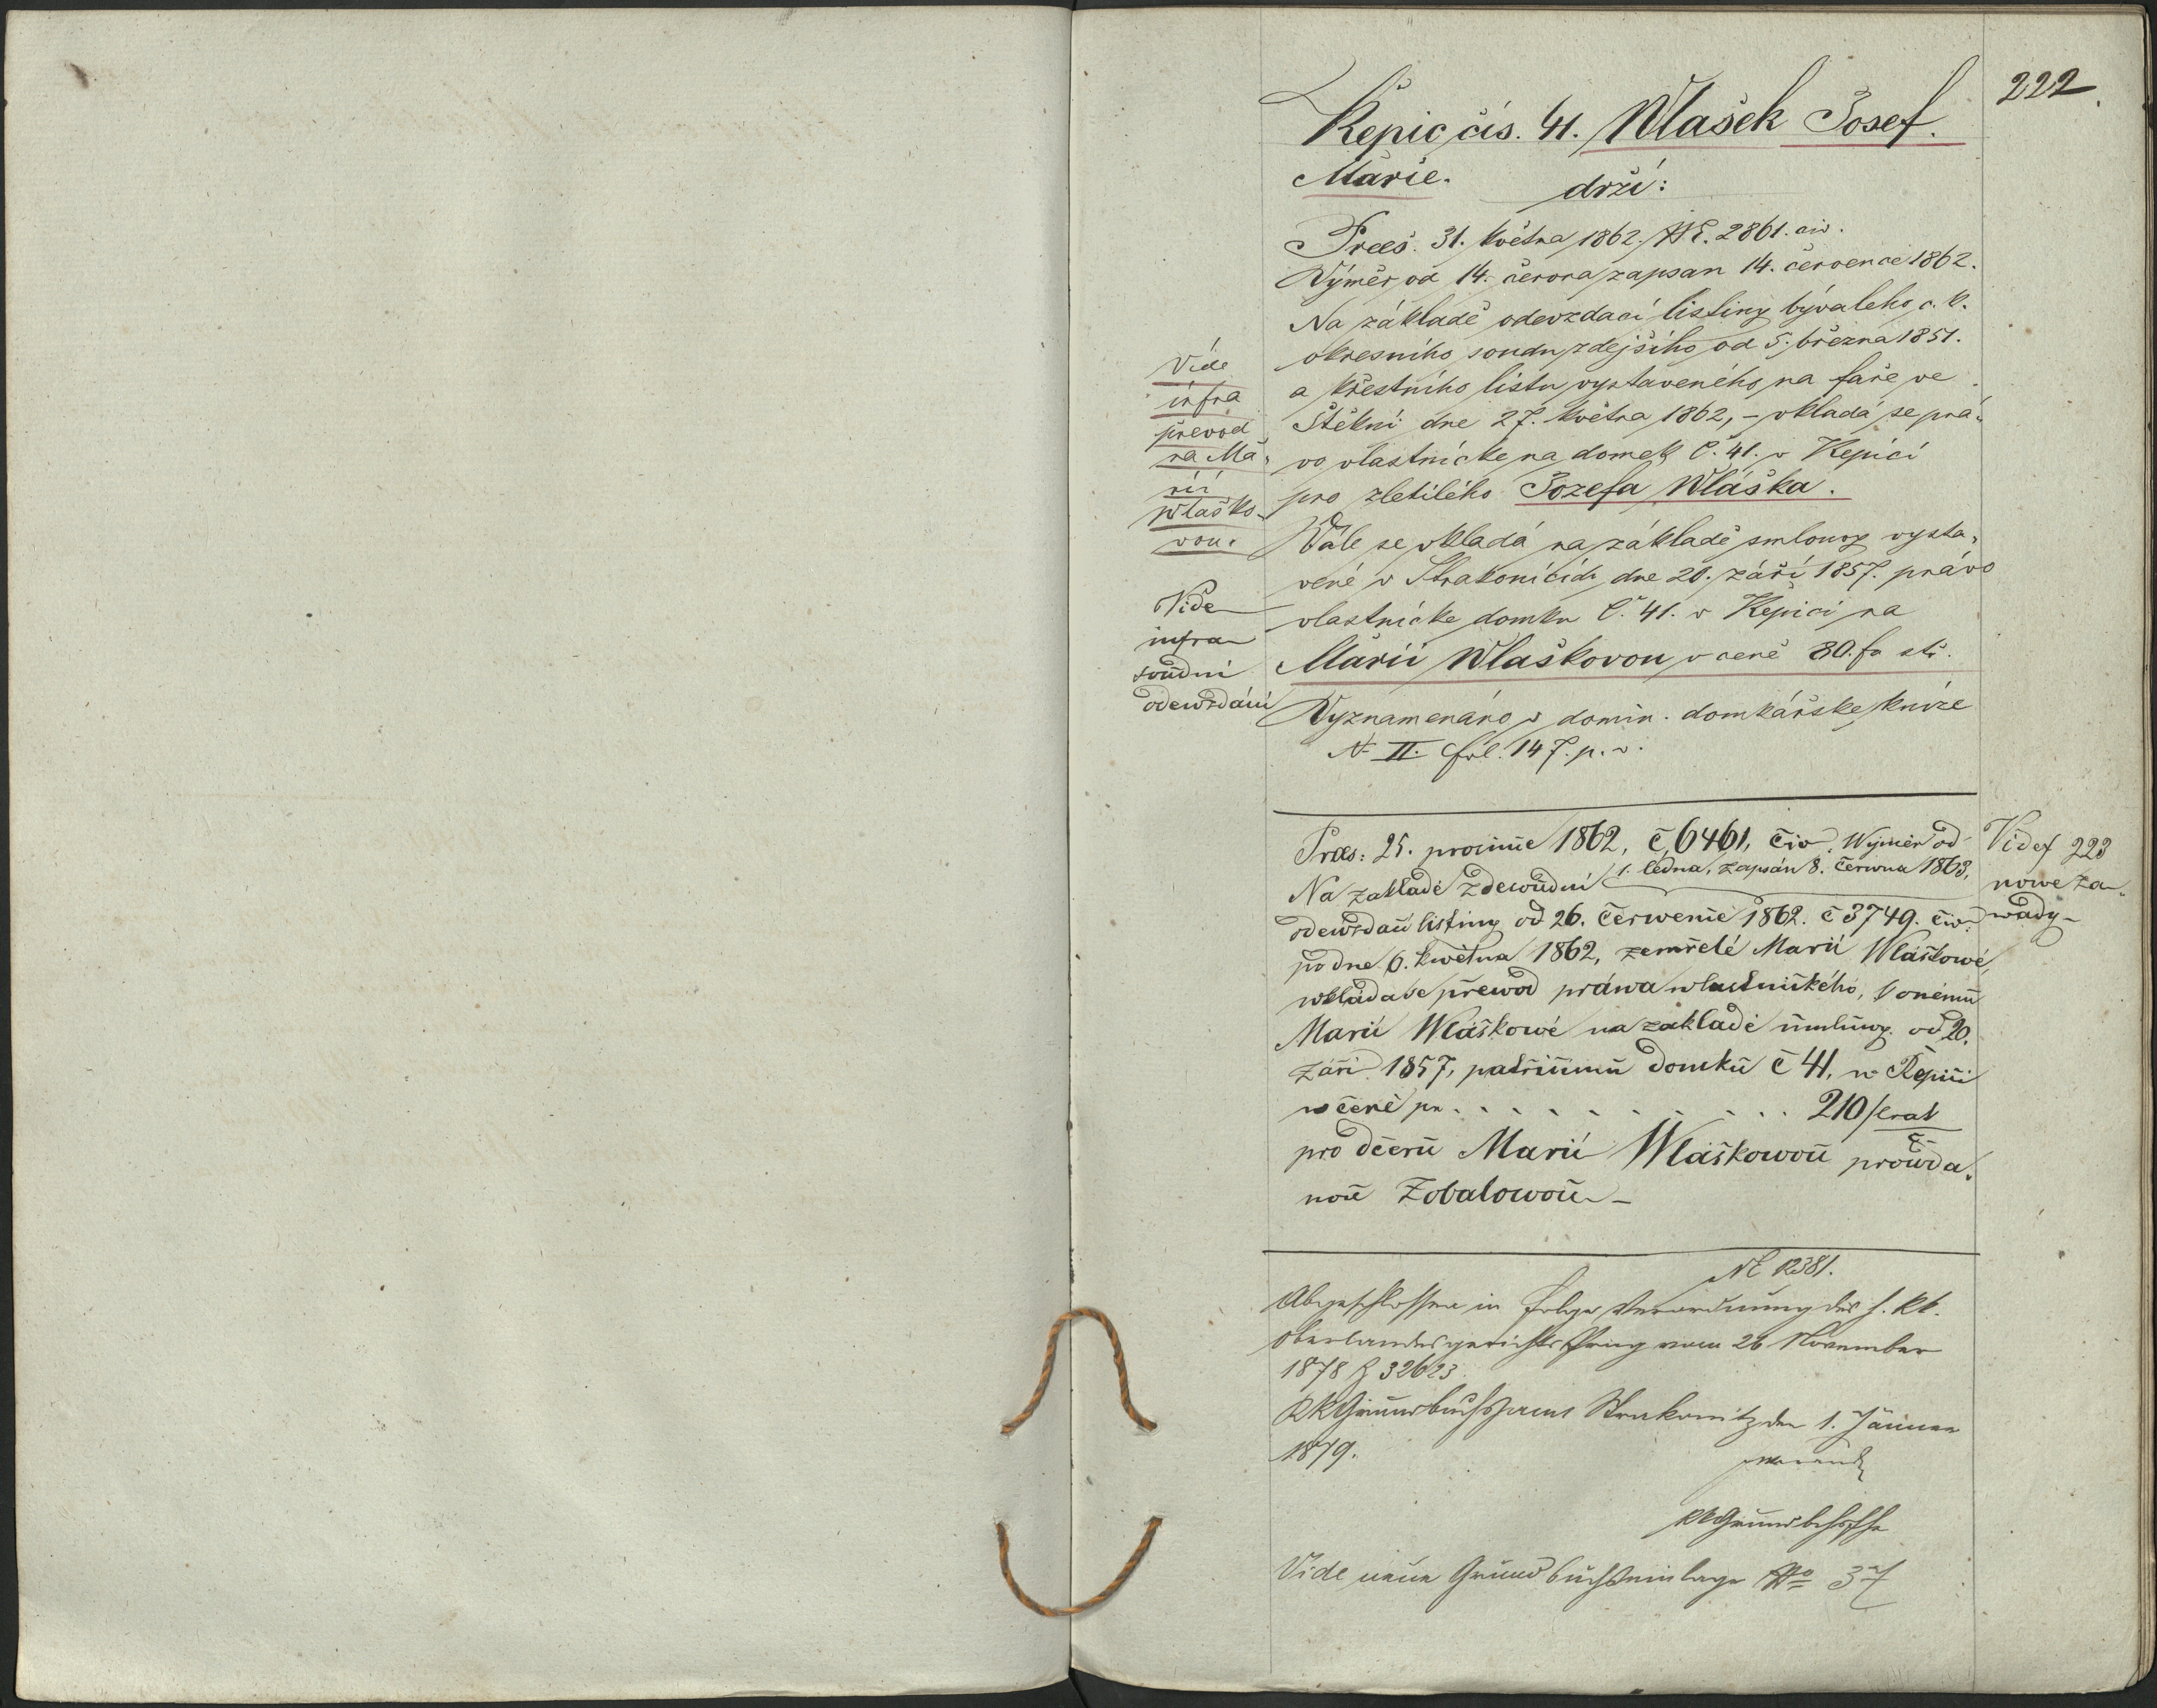 222
Řepic čís. 41. Wlašek Josef.
Marie. drží:
Praes. 31. května 1862. NE. 2861. civ.
Výměr od 14. června zapsan 14. července 1862.
Na základě odevzdací listiny bývalého c. k.
okresního soudu zdejšího od 5. března 1851.
a křestního listu vystaveného na faře ve
Štěkni dne 27. května 1862, – vkladá se prá-
vo vlastnícke na domek č. 41. v Řepici
pro zletilého Jozefa Wláška.
Dále se vkladá na základě smlouvy vysta-
vené v Strakonicích dne 20. září 1857. právo
vlastnícke domku č. 41. v Řepici na
Marii Wlaškovou v ceně 80. fr stř.
Vyznamenáno v domin. domkářske knize
N II. fol. 147. p. v.
Vide
infra
převod
na Ma-
rii
Wlaško-
vou.
Vide
infra
soudní
odewzdání
Praes: 25. prosince 1862, č 6461, civ. Wýměr od
1. ledna, zapsán 8. června 1863.
Na zakladě zdewšudní
odewzdací listiny od 26. července 1862. č 3749. civ:
po dne 6. května 1862, zemřelé Marii Wláškowé,
wkláda se přewod práwa wlastnického, k onému
Marii Wláškowé na zakladě smluwy od 20.
září 1857, patřícímu domku č 41, w Řepici
w ceně pr . . . . . . . . . . 210 f
pro dceru Marii Wláškowou prowda-
nou Zobalowou –
Vide f 223
nowe za-
wady –
NE 12381.
Abgeschlossen in Folge Verordnung des h. kk.
Oberlandesgerichts Prag vom 26 November
1878 Z 32623.
KK Grundbuchsamt Strakonitz den 1. Jänner
1879.
Vide neue Grundbuchseinlage No 37